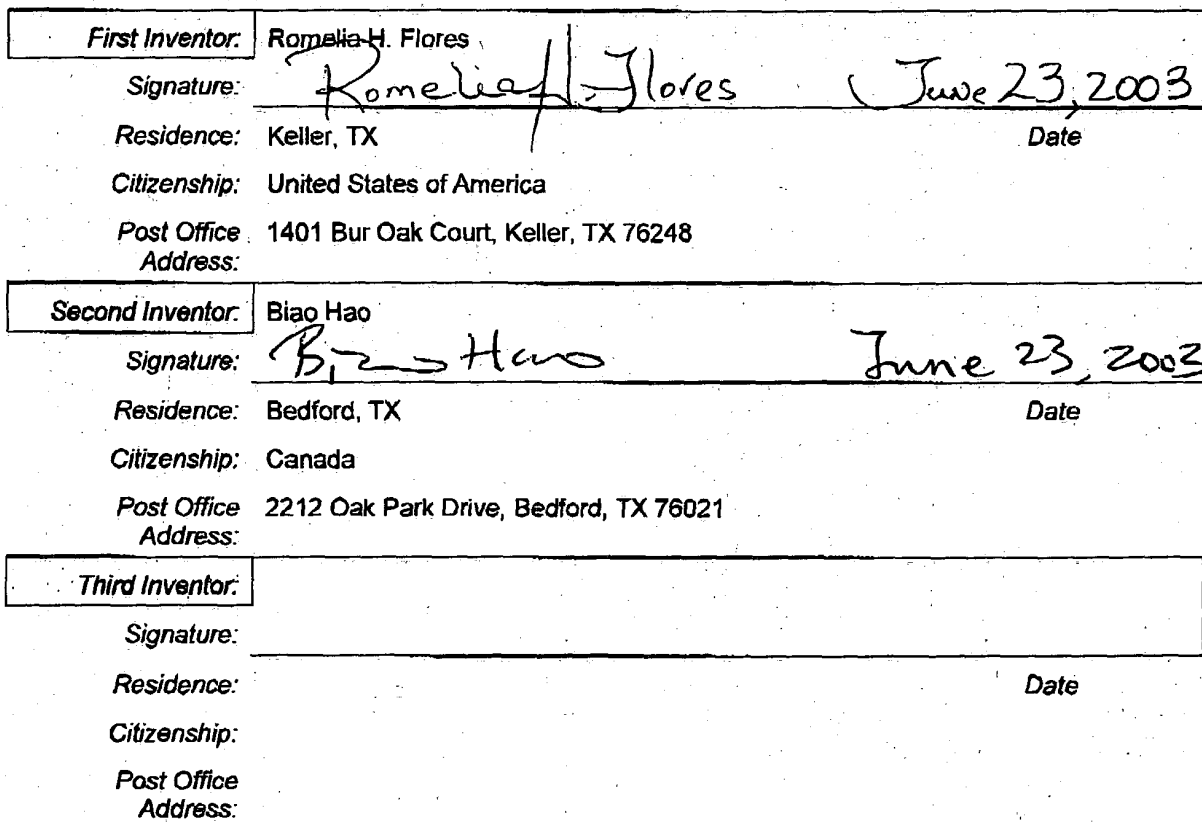 First Inventor: Romelia H. Flores
Signature: Romelia H. Flores June 23, 2003
Residence: Keller, TX Date
Citizenship: United States of America
Post Office 1401 Bur Oak Court, Keller, TX 76248
Address:
Second Inventor: Biao Hao
Signature: Biao Hao June 23, 2003
Residence: Bedford, TX Date
Citizenship: Canada
Post Office 2212 Oak Park Drive, Bedford, TX 76021
Address:
Third Inventor:
Signature:
Residence: Date
Citizenship:
Post Office
Address: